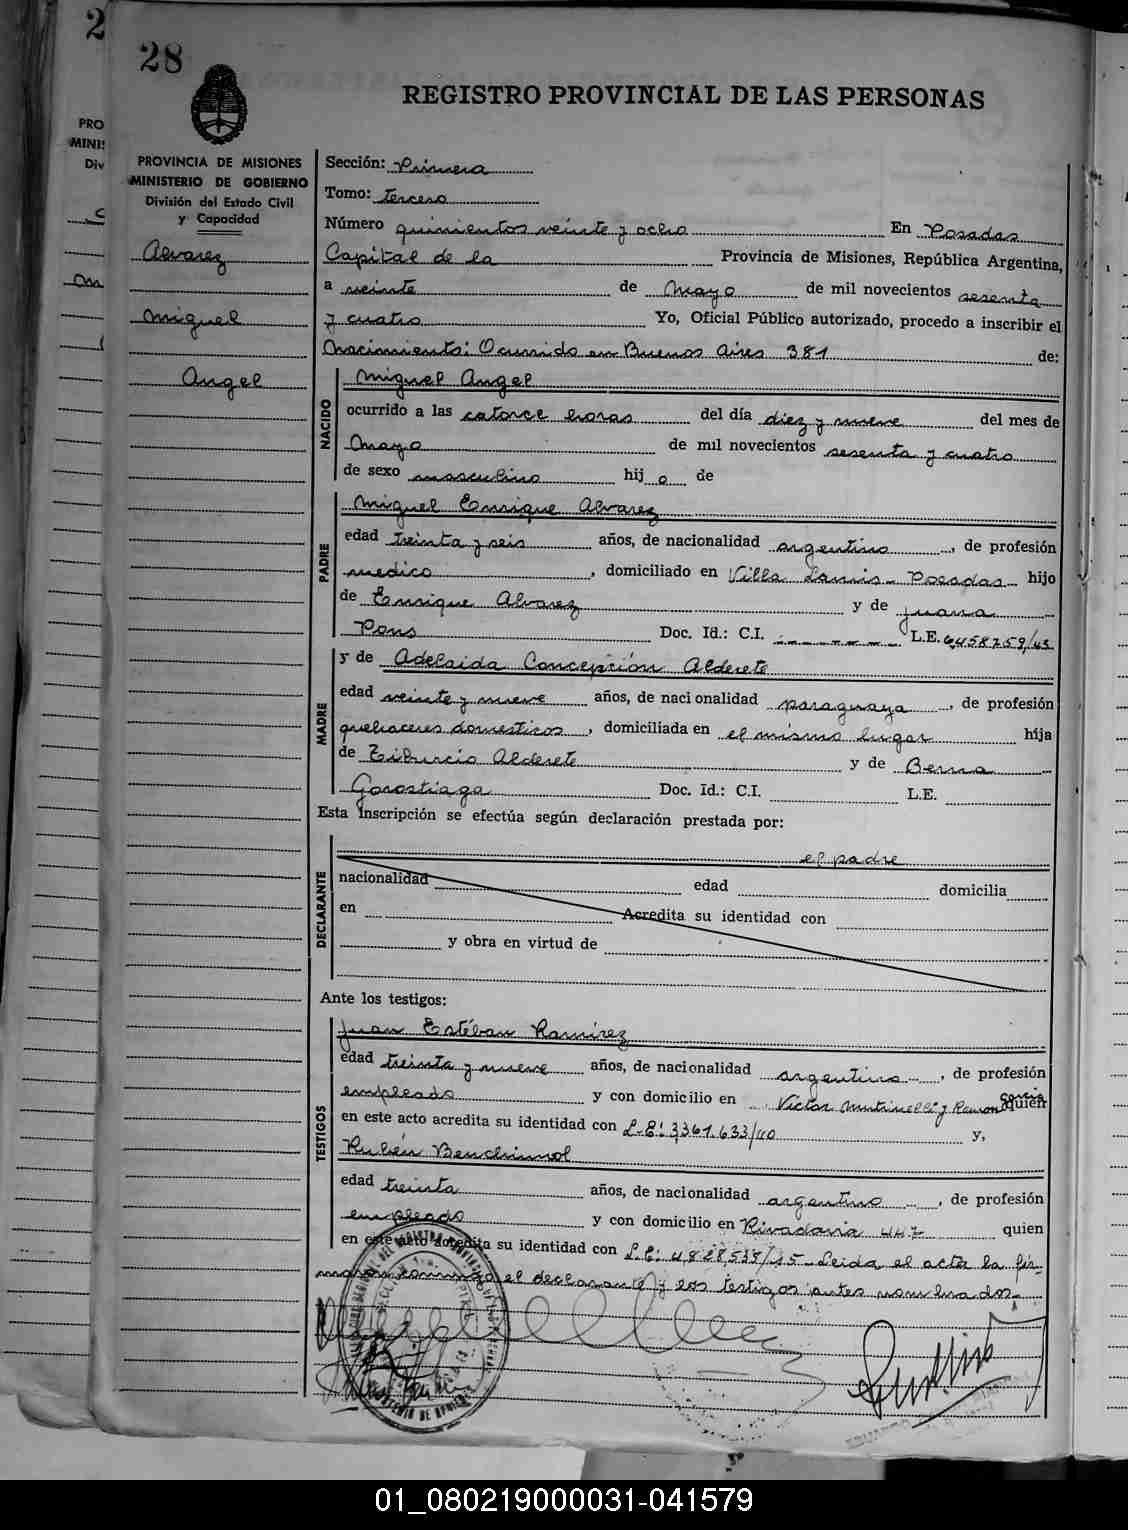 28
REGISTRO PROVINCIAL DE LAS PERSONAS
PROVINCIA DE MISIONES
MINISTERIO DE GOBIERNO
División del Estado Civil
y Capacidad
Alvarez
Miguel
Angel
Sección: Primera
Tomo: tercero
Número quinientos veinte y ocho En Posadas
Capital de la Provincia de Misiones, República Argentina,
a veinte de Mayo de mil novecientos sesenta
y cuatro Yo, Oficial Público autorizado, procedo a inscribir el
Nacimiento: Ocurrido en Buenos Aires 381 de:
NACIDO
Miguel Angel
ocurrido a las catorce horas del día diez y nueve del mes de
Mayo de mil novecientos sesenta y cuatro
de sexo masculino hij o de
PADRE
Miguel Enrique Alvarez
edad treinta y seis años, de nacionalidad argentino, de profesión
medico, domiciliado en Villa Lanús - Posadas hijo
de Enrique Alvarez y de Juana
Pons Doc. Id.: C.I. L.E. 6458759/45
MADRE
y de Adelaida Concepción Alderete
edad veinte y nueve años, de nacionalidad paraguaya, de profesión
quehaceres domesticos, domiciliada en el mismo lugar hija
de Tiburcio Alderete y de Berna
Gorostiaga Doc. Id.: C.I. L.E.
Esta inscripción se efectúa según declaración prestada por:
DECLARANTE
el padre
nacionalidad edad domicilia
en Acredita su identidad con
y obra en virtud de
Ante los testigos:
TESTIGOS
Juan Estéban Ramirez
edad treinta y nueve años, de nacionalidad argentino, de profesión
empleado y con domicilio en Victor Mutinelli y Ramon García quien
en este acto acredita su identidad con L.E: 3361.633/40 y,
Rubén Benchimol
edad treinta años, de nacionalidad argentino, de profesión
empleado y con domicilio en Rivadavia 447 quien
en este acto acredita su identidad con L.E: 4.828,538/45 - Leida el acta la fir-
maron conmigo el declarante y los testigos antes nombrados.
01_080219000031-041579